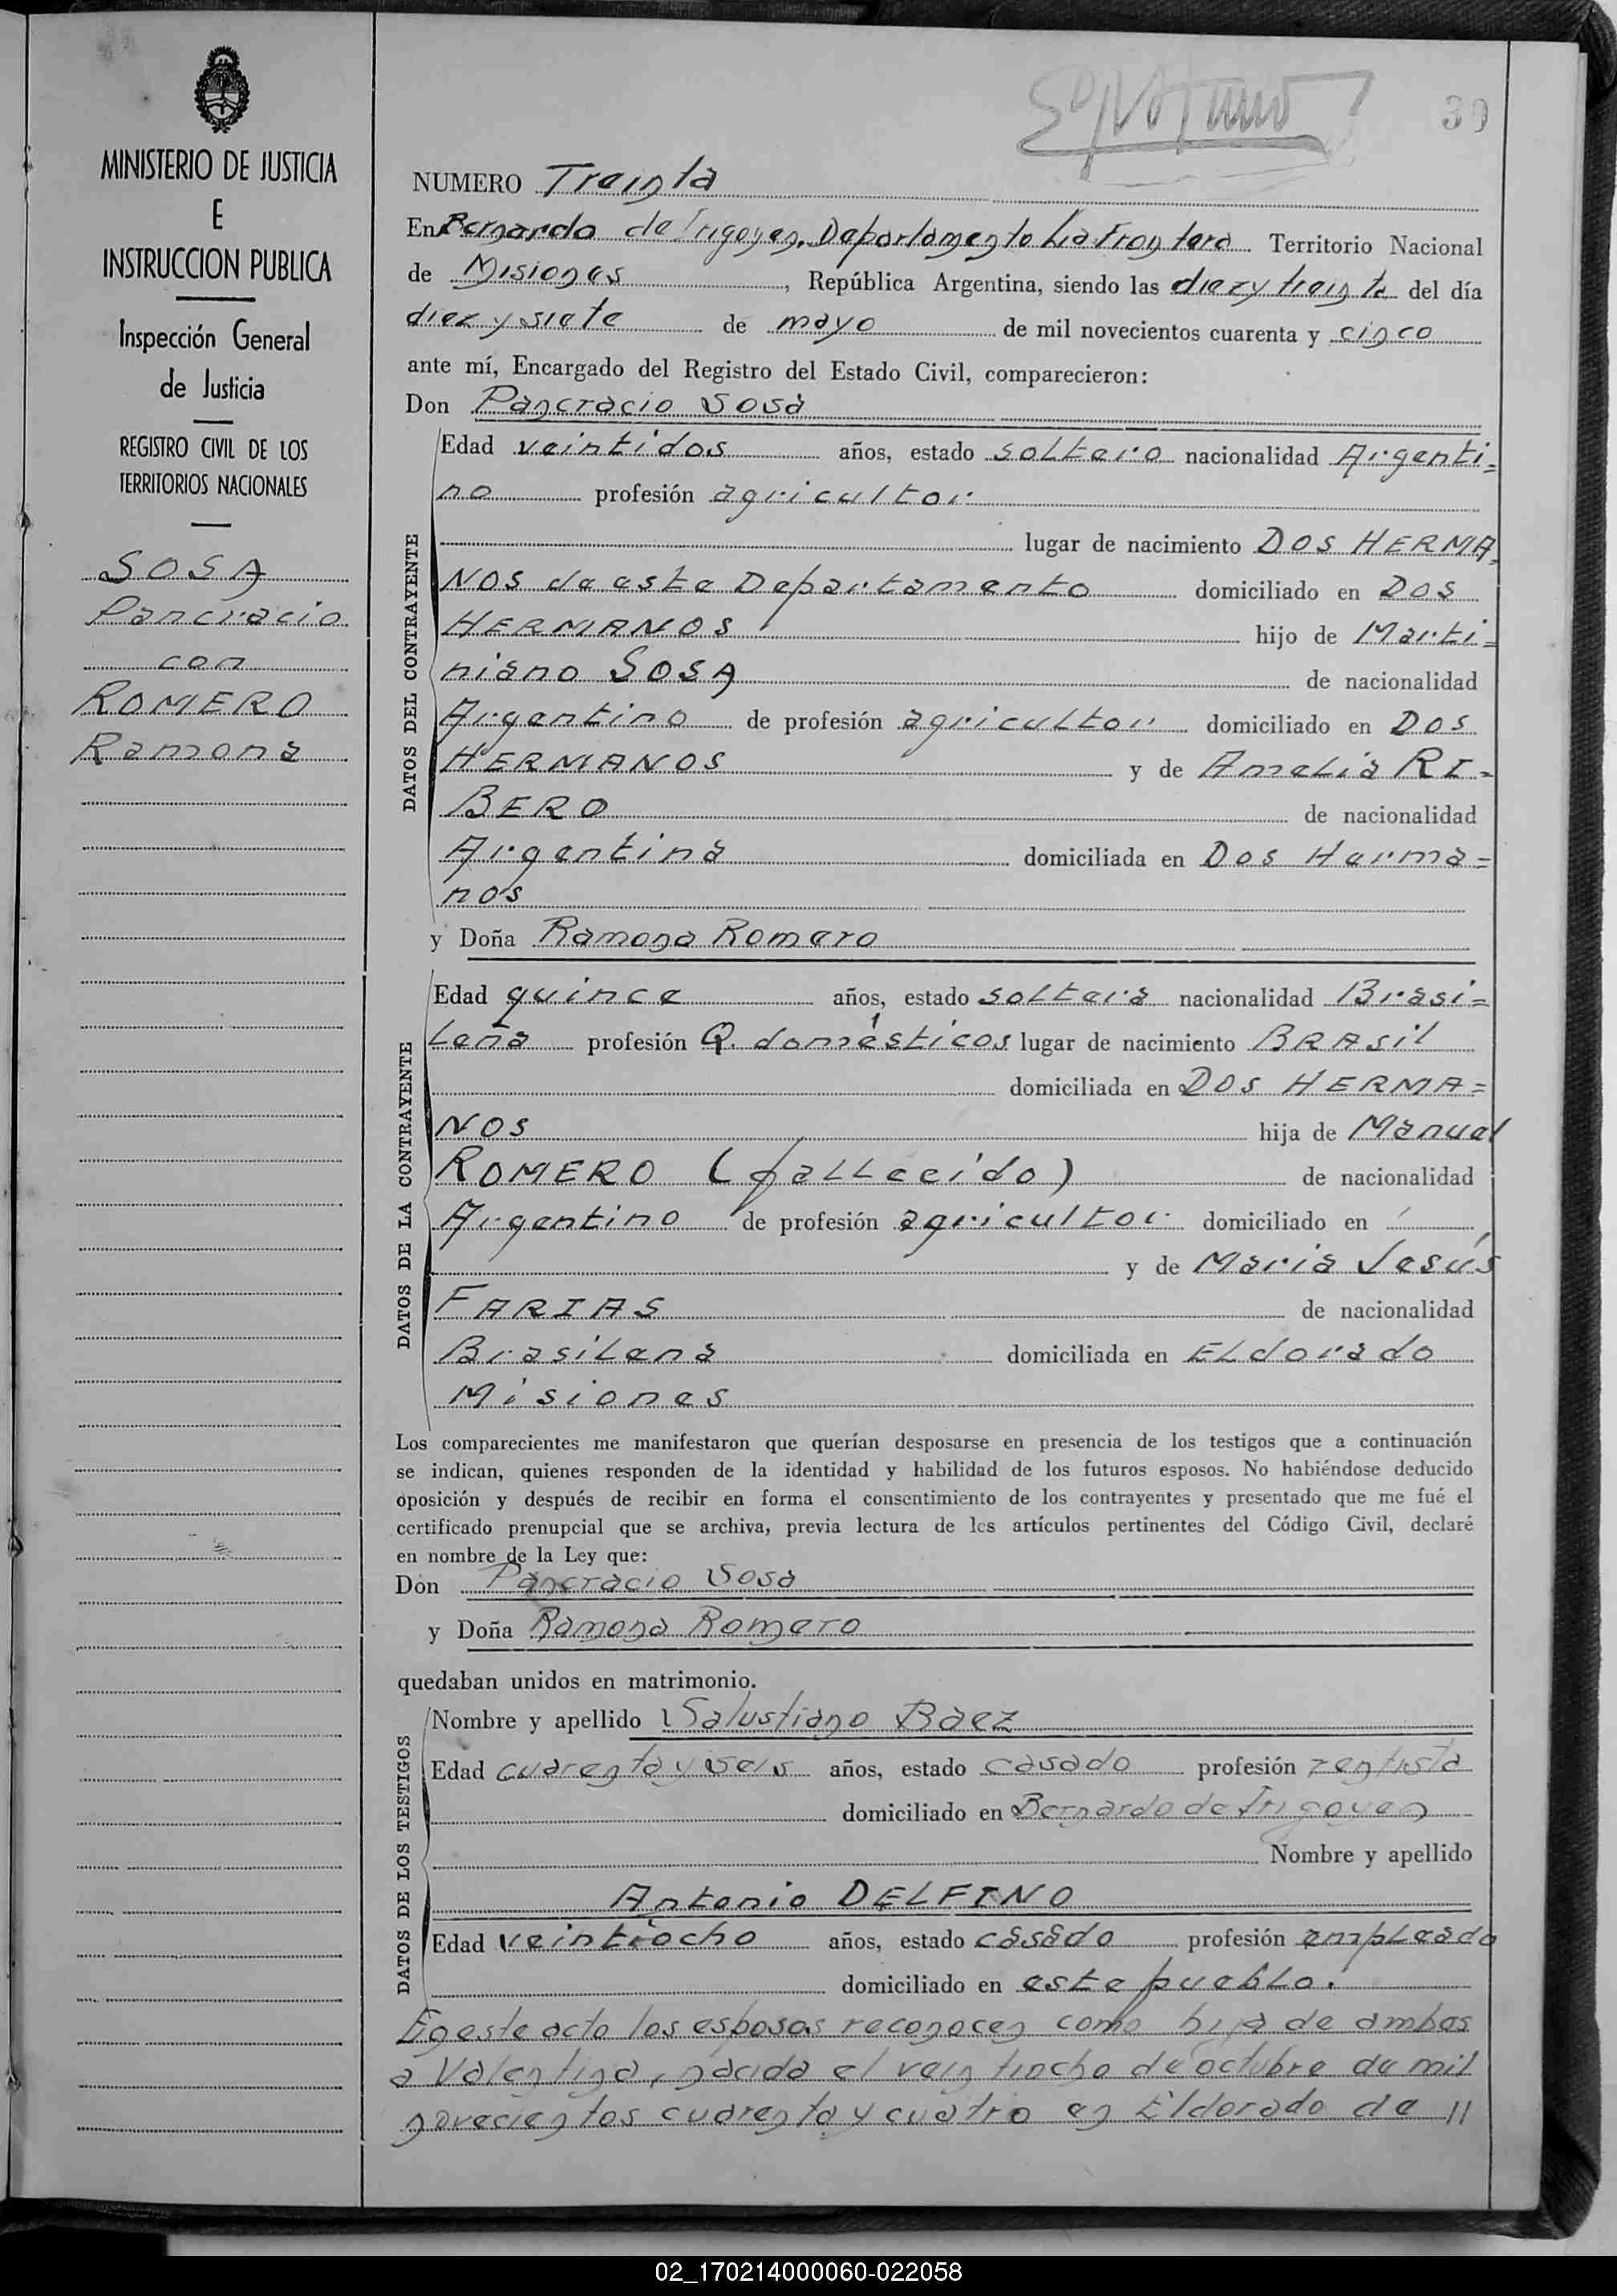 30
MINISTERIO DE JUSTICIA
E
INSTRUCCION PUBLICA
Inspección General
de Justicia
REGISTRO CIVIL DE LOS
TERRITORIOS NACIONALES
SOSA
Pancracio
con
ROMERO
Ramona
NUMERO Treinta
En Bernardo de Irigoyen, Departamento La Frontera Territorio Nacional
de Misiones, República Argentina, siendo las diez y treinta del día
diez y siete de mayo de mil novecientos cuarenta y cinco
ante mí, Encargado del Registro del Estado Civil, comparecieron:
Don Pancracio Sosa
DATOS DEL CONTRAYENTE
Edad veintidos años, estado soltero nacionalidad Argenti=
no profesión agricultor
lugar de nacimiento DOS HERMA
NOS de este Departamento domiciliado en DOS
HERMANOS hijo de Marti=
niano SOSA de nacionalidad
Argentino de profesión agricultor domiciliado en DOS
HERMANOS y de Amelia RI-
BERO de nacionalidad
Argentina domiciliada en Dos Herma=
nos
y Doña Ramona Romero
DATOS DE LA CONTRAYENTE
Edad quince años, estado soltera nacionalidad Brasi=
leña profesión Q. domésticos lugar de nacimiento BRASil
domiciliada en DOS HERMA=
NOS hija de Manuel
ROMERO (fallecido) de nacionalidad
Argentino de profesión agricultor domiciliado en
y de Maria Jesús
FARIAS de nacionalidad
Brasilena domiciliada en ELdorado
Misiones
Los comparecientes me manifestaron que querían desposarse en presencia de los testigos que a continuación
se indican, quienes responden de la identidad y habilidad de los futuros esposos. No habiéndose deducido
oposición y después de recibir en forma el consentimiento de los contrayentes y presentado que me fué el
certificado prenupcial que se archiva, previa lectura de los artículos pertinentes del Código Civil, declaré
en nombre de la Ley que:
Don Pancracio Sosa
y Doña Ramona Romero
quedaban unidos en matrimonio.
DATOS DE LOS TESTIGOS
Nombre y apellido Salustiano Baez
Edad cuarenta y seis años, estado casado profesión rentista
domiciliado en Bernardo de Irigoyen
Nombre y apellido
Antonio DELFINO
Edad veintiocho años, estado casado profesión empleado
domiciliado en este pueblo.
En este acto los esposos reconocen como hija de ambos
a Valentina, nacida el veintiocho de octubre de mil
novecientos cuarenta y cuatro en Eldorado de //
02_170214000060-022058